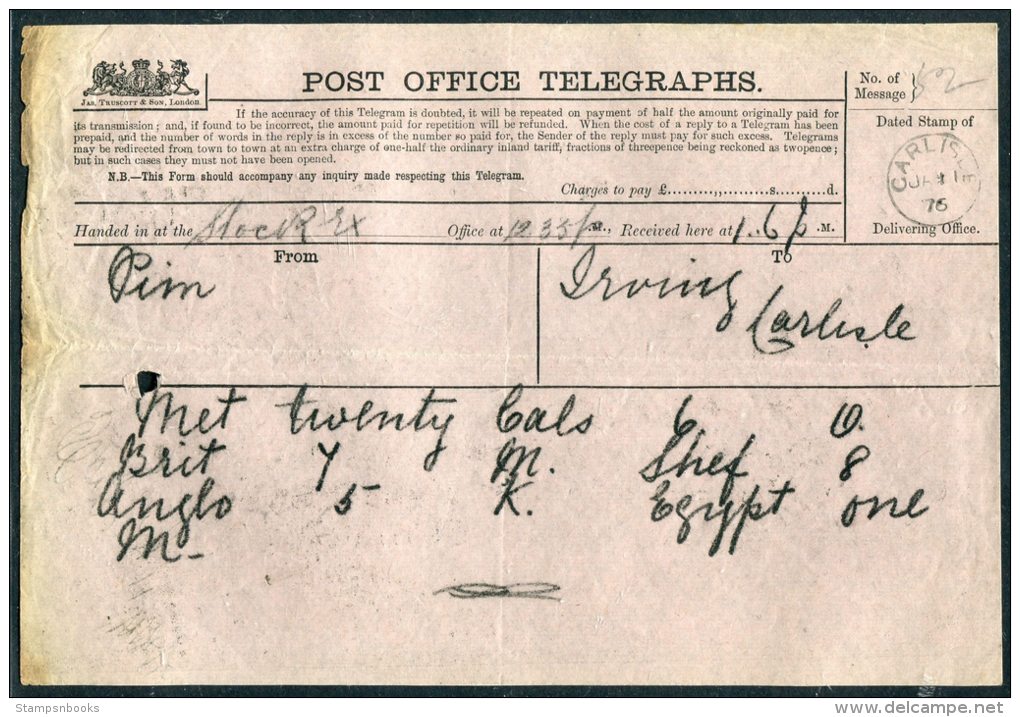 JAS. TRUSCOTT & SON, LONDON.
POST OFFICE TELEGRAPHS.
No. of
Message
52
If the accuracy of this Telegram is doubted, it will be repeated on payment of half the amount originally paid for
its transmission; and, if found to be incorrect, the amount paid for repetition will be refunded. When the cost of a reply to a Telegram has been
prepaid, and the number of words in the reply is in excess of the number so paid for, the Sender of the reply must pay for such excess. Telegrams
may be redirected from town to town at an extra charge of one-half the ordinary inland tariff, fractions of threepence being reckoned as twopence;
but in such cases they must not have been opened.
N.B.—This Form should accompany any inquiry made respecting this Telegram.
Charges to pay £..........,,.........s.........d.
Dated Stamp of
CARLISLE
76
Delivering Office.
Handed in at the Stock Ex Office at 12 35 p M., Received here at 1..6 p .M.
From
Pim
To
Irving
Carlisle
Met twenty Cals 6 O.
Brit Y M. Shef 8
Anglo 5 K. Egypt one
M-
Stampsnbooks
www.delcampe.net